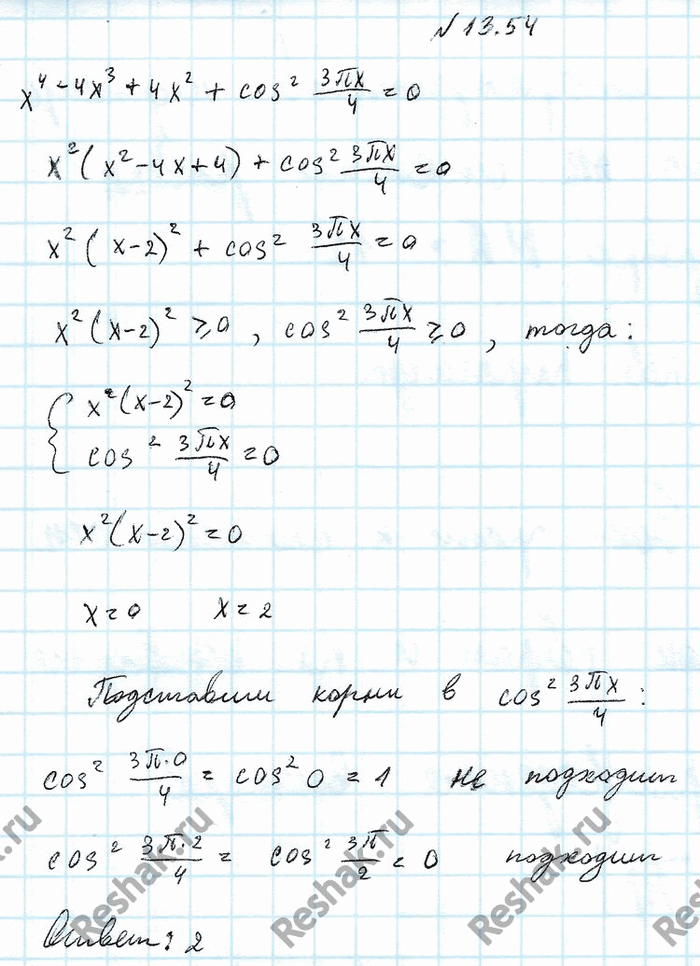 № 13.54
x⁴ - 4x³ + 4x² + cos² 3πx/4 = 0
x² (x² - 4x + 4) + cos² 3πx/4 = 0
x² (x-2)² + cos² 3πx/4 = 0
x² (x-2)² ≥ 0 , cos² 3πx/4 ≥ 0 , тогда:
{ x² (x-2)² = 0
cos² 3πx/4 = 0
x² (x-2)² = 0
x = 0 x = 2
Подставим корни в cos² 3πx/4 :
cos² 3π·0/4 = cos² 0 = 1 не подходит
cos² 3π·2/4 = cos² 3π/2 = 0 подходит
Ответ: 2
Reshak.ru
Reshak.ru
Reshak.ru
Reshak.ru